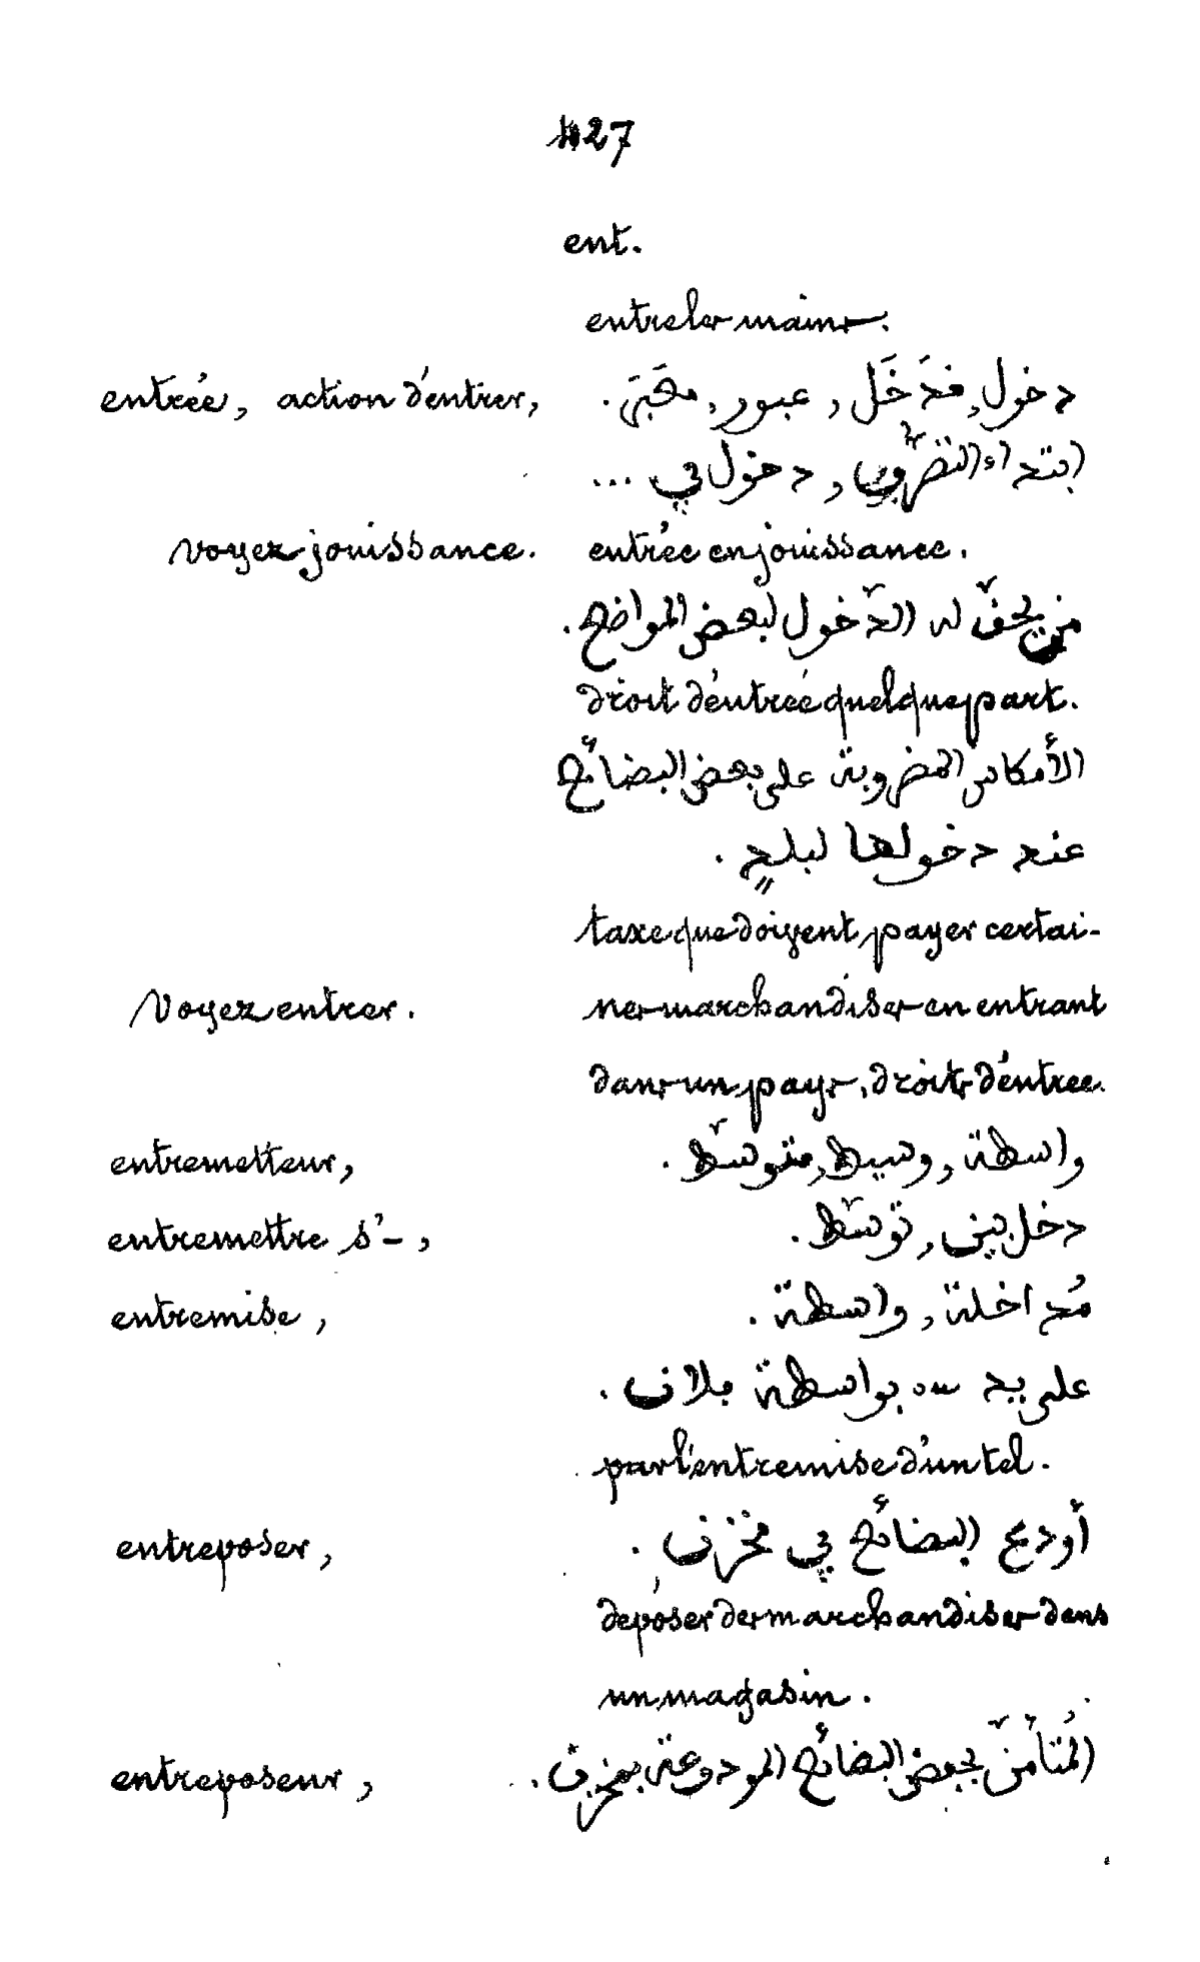 427
ent.
entre les mains.
entrée, action d'entrer, دخول, مَدْخَل, عبور,
ابتداء التصرّف, دخول في ...
voyez jouissance. entrée en jouissance.
من يحقّ له الدّخول لبعض المواضع.
droit d'entrée quelque part.
الأمكاس المضروبة على بعض البضائع
عند دخولها لبلدٍ.
taxe que doivent payer certai-
Voyez entrer. nes marchandises en entrant
dans un pays, droits d'entrée.
entremetteur, واسطة, وسيط, متوسّط.
entremettre s'-, دخل بين, توسّط.
entremise, مُداخلة, واسطة.
على يد بواسطة فلان.
par l'entremise d'un tel.
entreposer, أودع البضائع في مخزن.
déposer des marchandises dans
un magasin.
entreposeur, المُتأمّن بحفظ البضائع المودوعة بمخزن.